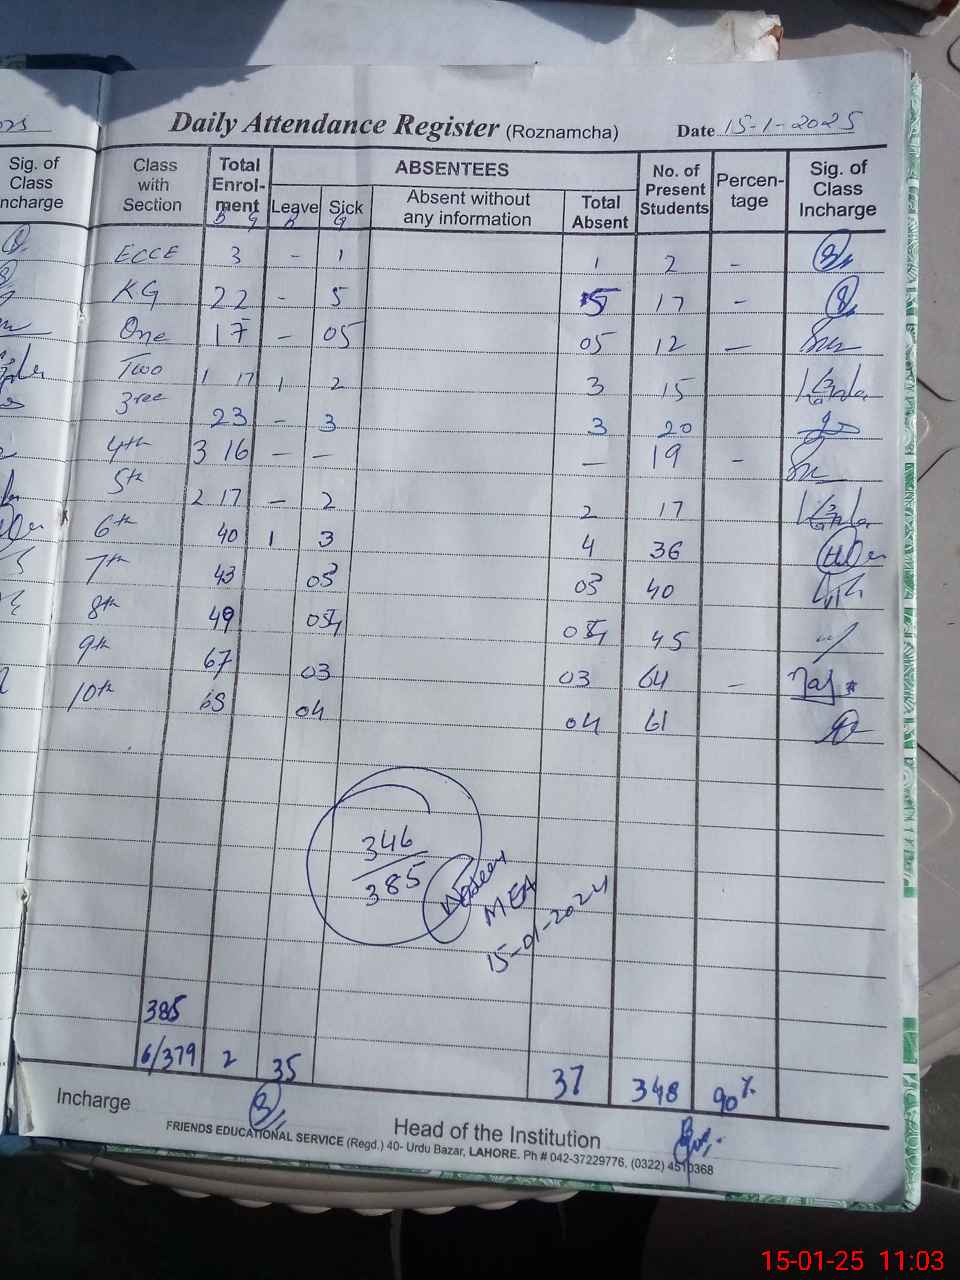 Daily Attendance Register (Roznamcha) Date 15-1-2025
Sig. of Class Incharge
Class with Section Total Enrolment ABSENTEES No. of Present Students Percentage Sig. of Class Incharge
B G Leave Sick Absent without any information Total Absent
B G
ECCE 3 - 1 1 2 -
KG 22 - 5 5 17 -
One 17 - 05 05 12 -
Two 1 17 1 2 3 15
3ree 23 - 3 3 20
4th 3 16 - - - 19 -
5th 2 17 - 2 2 17
6th 40 1 3 4 36
7th 43 03 03 40
8th 49 04 04 45
9th 67 03 03 64 -
10th 65 04 04 61
346
385
MEA
15-01-2024
385
6/379 2 35 37 348 90%
Incharge
Head of the Institution
FRIENDS EDUCATIONAL SERVICE (Regd.) 40- Urdu Bazar, LAHORE. Ph # 042-37229776, (0322) 4510368
15-01-25 11:03